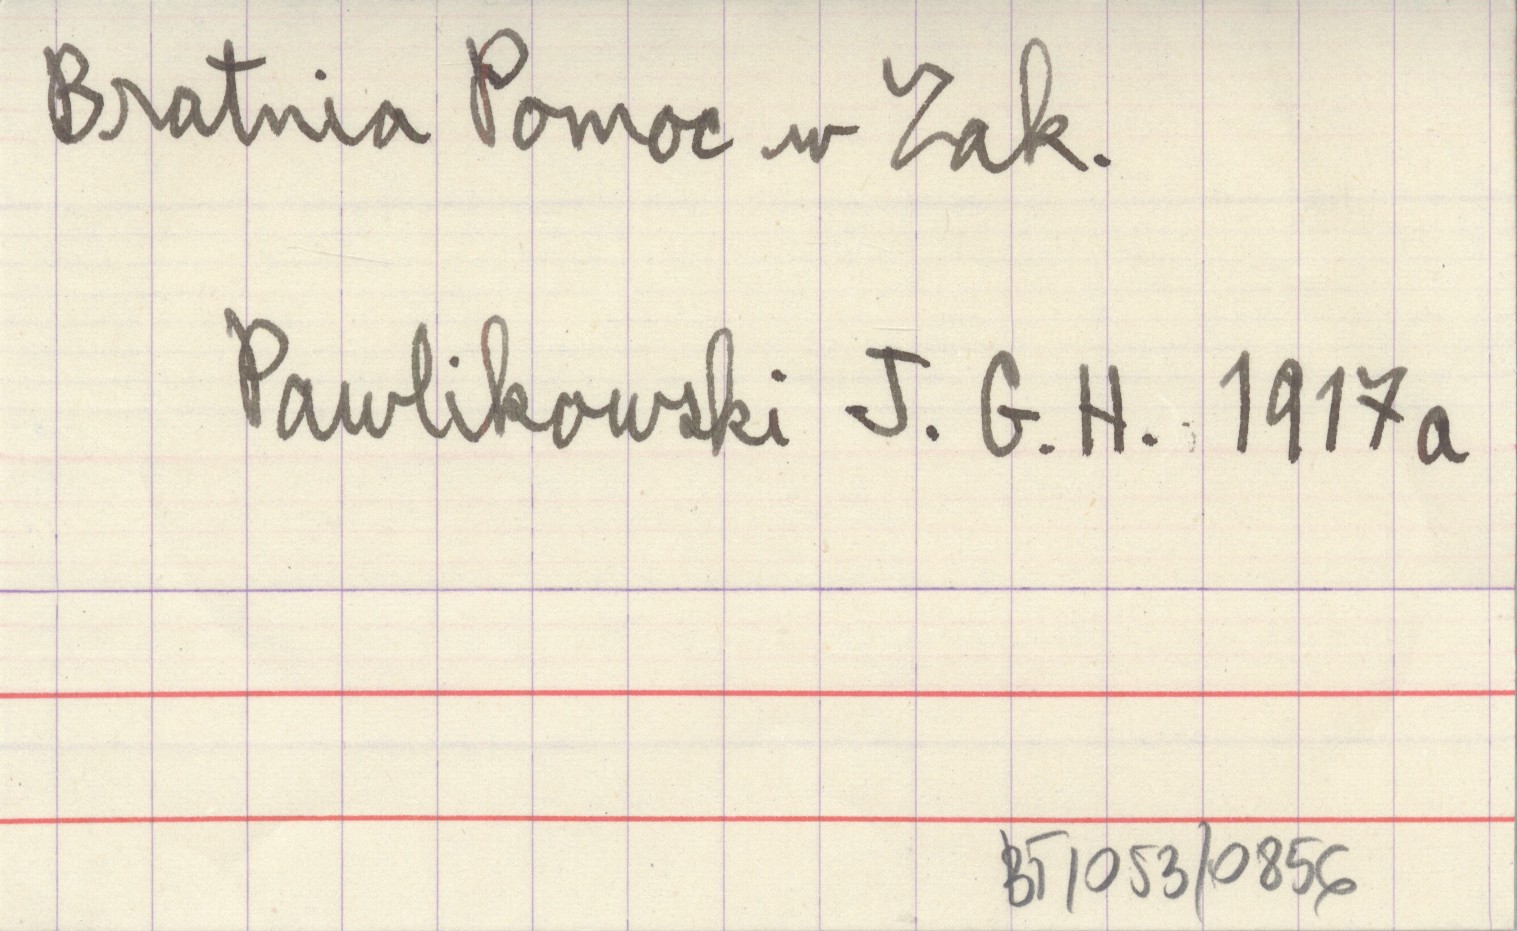 Bratnia Pomoc w Zak.
Pawlikowski J. G. H. 1917a
BT/053/0856